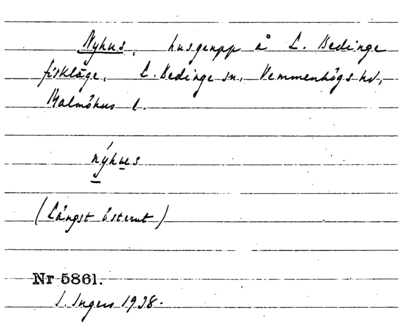 Nyhus, husgrupp å L. Bedinge
fiskläge, L. Bedinge sn, Vemmenhögs hd,
Malmöhus l.
nýhu̲s
(Längst österut)
Nr 5861.
I. Ingers 1938.